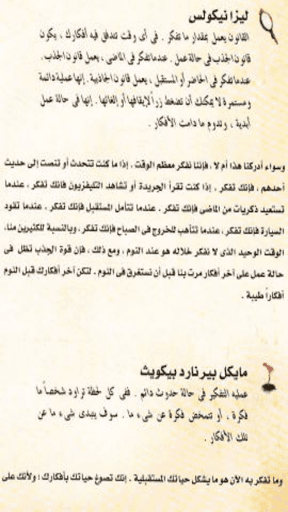 ليزا نيكولس
القانون يعمل بمقدار ما تفكر . فى أى وقت تتدفق فيه أفكارك ، يكون
قانون الجذب فى حالة عمل . عندما تفكر فى الماضى ، يعمل قانون الجذب .
عندما تفكر فى الحاضر أو المستقبل ، يعمل قانون الجاذبية . إنها عملية دائمة
ومستمرة لا يمكنك أن تضغط زراً لإيقافها أو إلغائها . إنها فى حالة عمل
أبدية ، وتدوم ما دامت الأفكار .
وسواء أدركنا هذا أم لا ، فإننا نفكر معظم الوقت . إذا ما كنت تتحدث أو تنصت إلى حديث
أحدهم ، فإنك تفكر ، إذا كنت تقرأ الجريدة أو تشاهد التليفزيون فإنك تفكر ، عندما
تستعيد ذكريات من الماضى فإنك تفكر . عندما تتأمل المستقبل فإنك تفكر . عندما تقود
السيارة فإنك تفكر ، عندما تتأهب للخروج فى الصباح فإنك تفكر ، وبالنسبة للكثيرين منا،
الوقت الوحيد الذى لا نفكر خلاله هو عند النوم ، ومع ذلك ، فإن قوة الجذب تظل فى
حالة عمل على آخر أفكار مرت بنا قبل أن نستغرق فى النوم . لتكن آخر أفكارك قبل النوم
أفكاراً طيبة .
مايكل بيرنارد بيكويث
عملية التفكير فى حالة حدوث دائم . ففى كل لحظة تراود شخصاً ما
فكرة ، أو تتمخض فكرة عن شىء ما . سوف يتبدى شىء ما عن
تلك الأفكار .
وما تفكر به الآن هو ما يشكل حياتك المستقبلية . إنك تصوغ حياتك بأفكارك ؛ ولأنك على